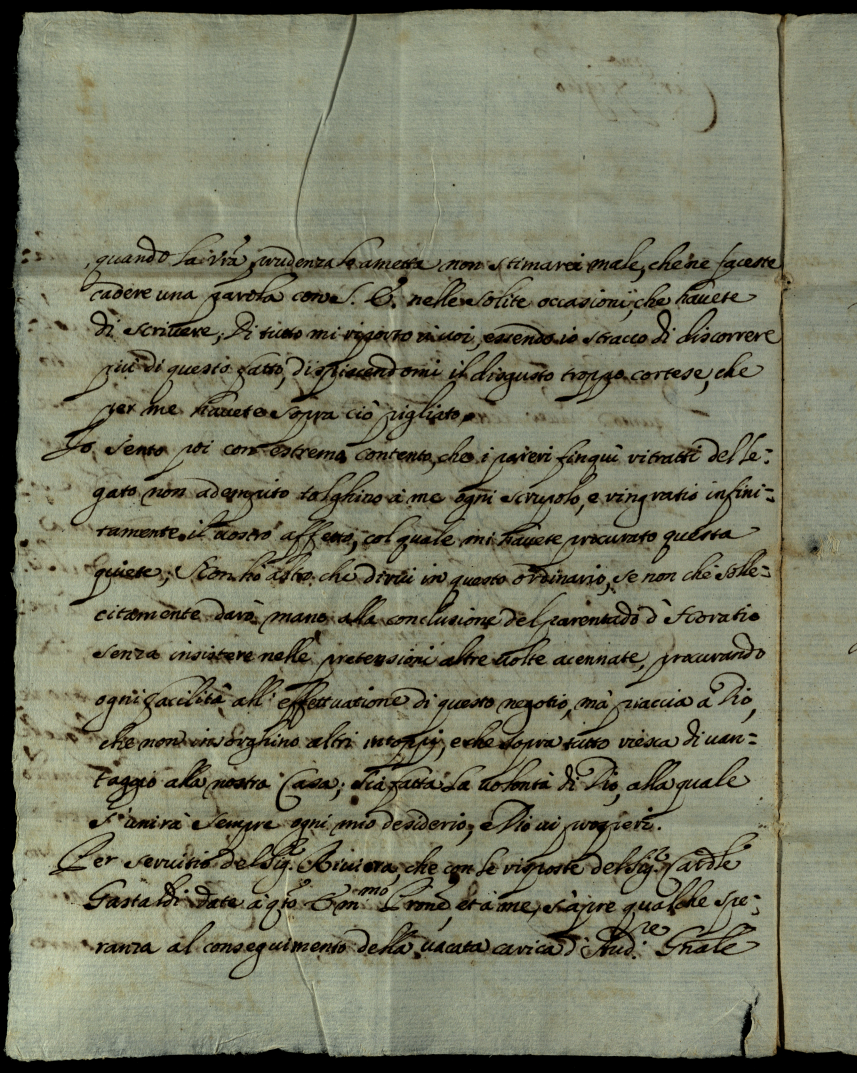 quando la vrã prudenza lo ametta non stimarei male, che ne faceste
cadere una parola con S. E. nelle solite occasioni, che havete
di scrivere; Di tutto mi riporto à voi, essendo io stracco di discorrere
più di questo fatto, dispiacendomi il disgusto troppo cortese, che
per me havete sopra ciò pigliato.
Io sento poi con estremo contento, che i pareri finquì ritratti del le=
gato non adempito tolghino à me ogni scrupolo, e ringratio infini=
tamente il vostro affetto, col quale mi havete procurato questa
quiete; Non hò altro che dirvi in questo ordinario, se non che solle=
citamente darò mano alla conclusione del parentado d'Horatio
senza insistere nelle pretensioni altre volte acennate, procurando
ogni facilità all'effettuatione di questo negotio, mà piaccia à Dio,
che non insorghino altri intoppi, e che sopra tutto riesca di van=
taggio alla nostra Casa; sia fatta la volontà di Dio, alla quale
s'unirà sempre ogni mio desiderio, e Dio vi prosperi.
Per servitio del Sigr. Riviera, che con le risposte del Sigr. Cardle
Gastaldi date a qto Emmo Prone, et à me, s'apre qualche spe=
ranza al conseguimento della vacata carica d'Audre Gnale